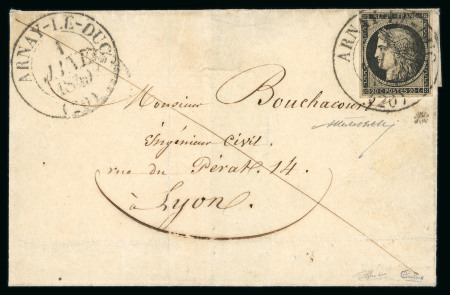 ARNAY-LE-DUC
1
JANV
(20)
REPUB. FRANC.
20 C POSTES 20 C
ARNAY-LE-DUC
(20)
Monsieur Bouchacourt
Ingénieur Civil
rue du Pérat. 14.
à Lyon.